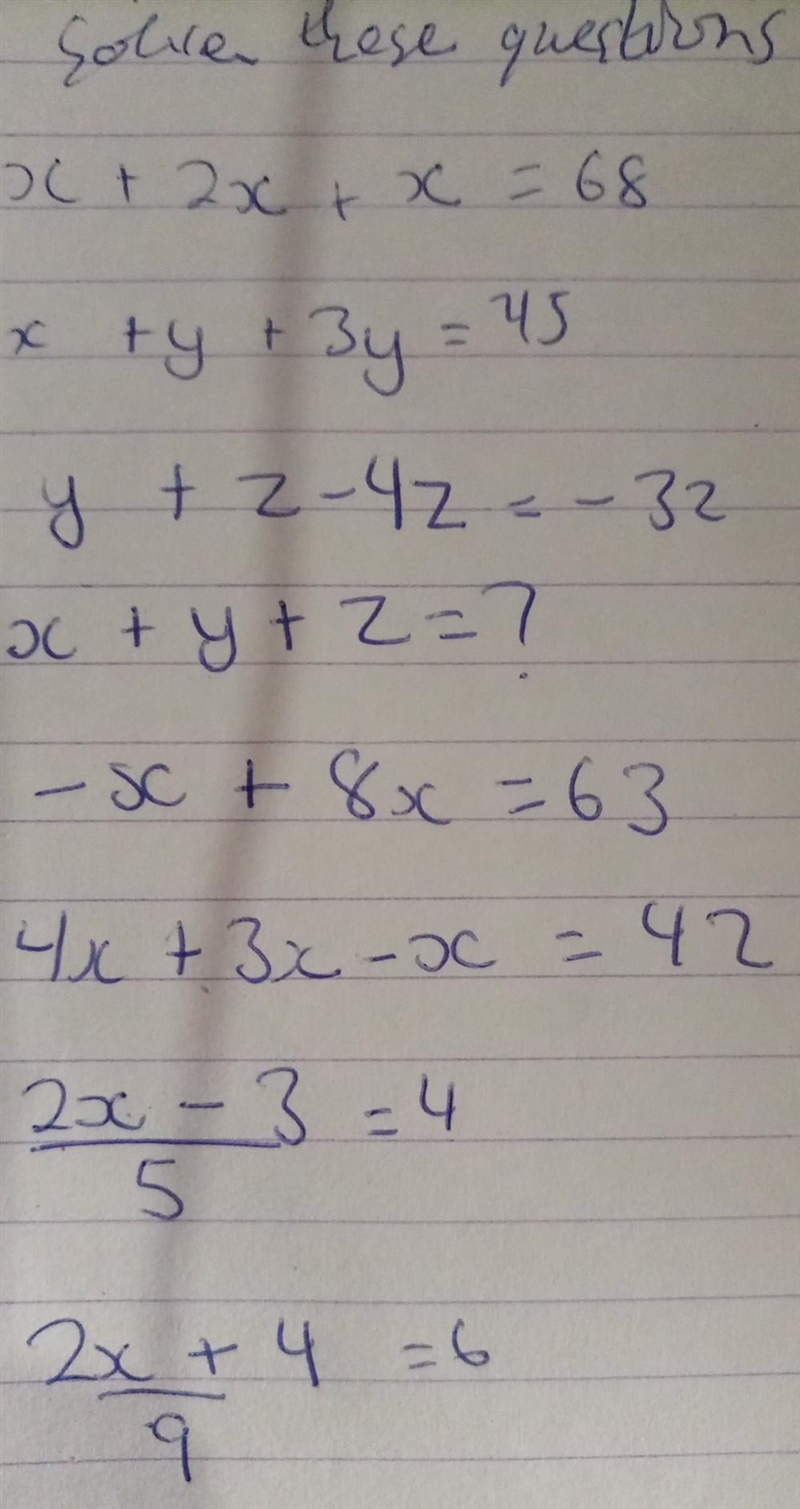 Solve these questions
x + 2x + x = 68
x + y + 3y = 45
y + z - 4z = - 32
x + y + z = ?
- x + 8x = 63
4x + 3x - x = 42
2x - 3 = 4
5
2x + 4 = 6
9